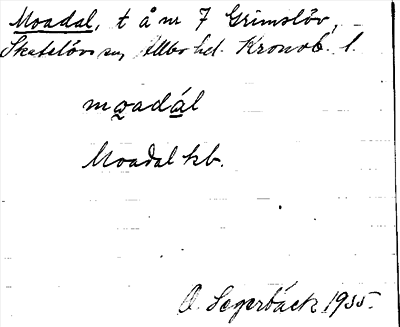 Moadal, t å nr 7 Grimslöv,
Skatelövs sn, Allbo hd. Kronob. l.
moadál
Moadal kb.
O. Segerbäck 1935.